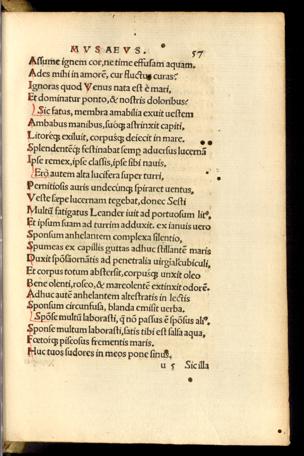 MVSAEVS.
57
Assume ignem cor, ne time effusam aquam.
Ades mihi in amorē, cur fluctus curas?
Ignoras quod Venus nata est è mari,
Et dominatur ponto, & nostris doloribus?
Sic fatus, membra amabilia exuit uestem
Ambabus manibus, suoq; astrinxit capiti,
Litoreq; exiluit, corpusq; deiecit in mare.
Splendenteq; festinabat semp aduersus lucernā
Ipse remex, ipse classis, ipse sibi nauis.
Erō autem alta lucifera super turri,
Pernitiosis auris undecunq; spiraret uentus,
Veste sæpe lucernam tegebat, donec Sesti
Multū fatigatus Leander iuit ad portuosum
Et ipsum suam ad turrim adduxit. ex ianuis uero
Sponsum anhelantem complexa silentio,
Spumeas ex capillis guttas adhuc stillantē maris
Duxit ad penetralia uirgīalcubiculi,
Et corpus totum abstersit, corpusq; unxit oleo
Bene olenti, roseo, & marcolentē extinxit odorē.
Adhuc autē anhelantem alte stratis in lectis
Sponsum circunfusa, blanda emisit uerba.
Spōse multū laborasti, q̄ nō passus ē spōsus
Sponse multum laborasti, satis tibi est salsa aqua,
Fœtorq; piscosus frementis maris.
Huc tuos sudores in meos pone sinus.
u 5 Sic illa